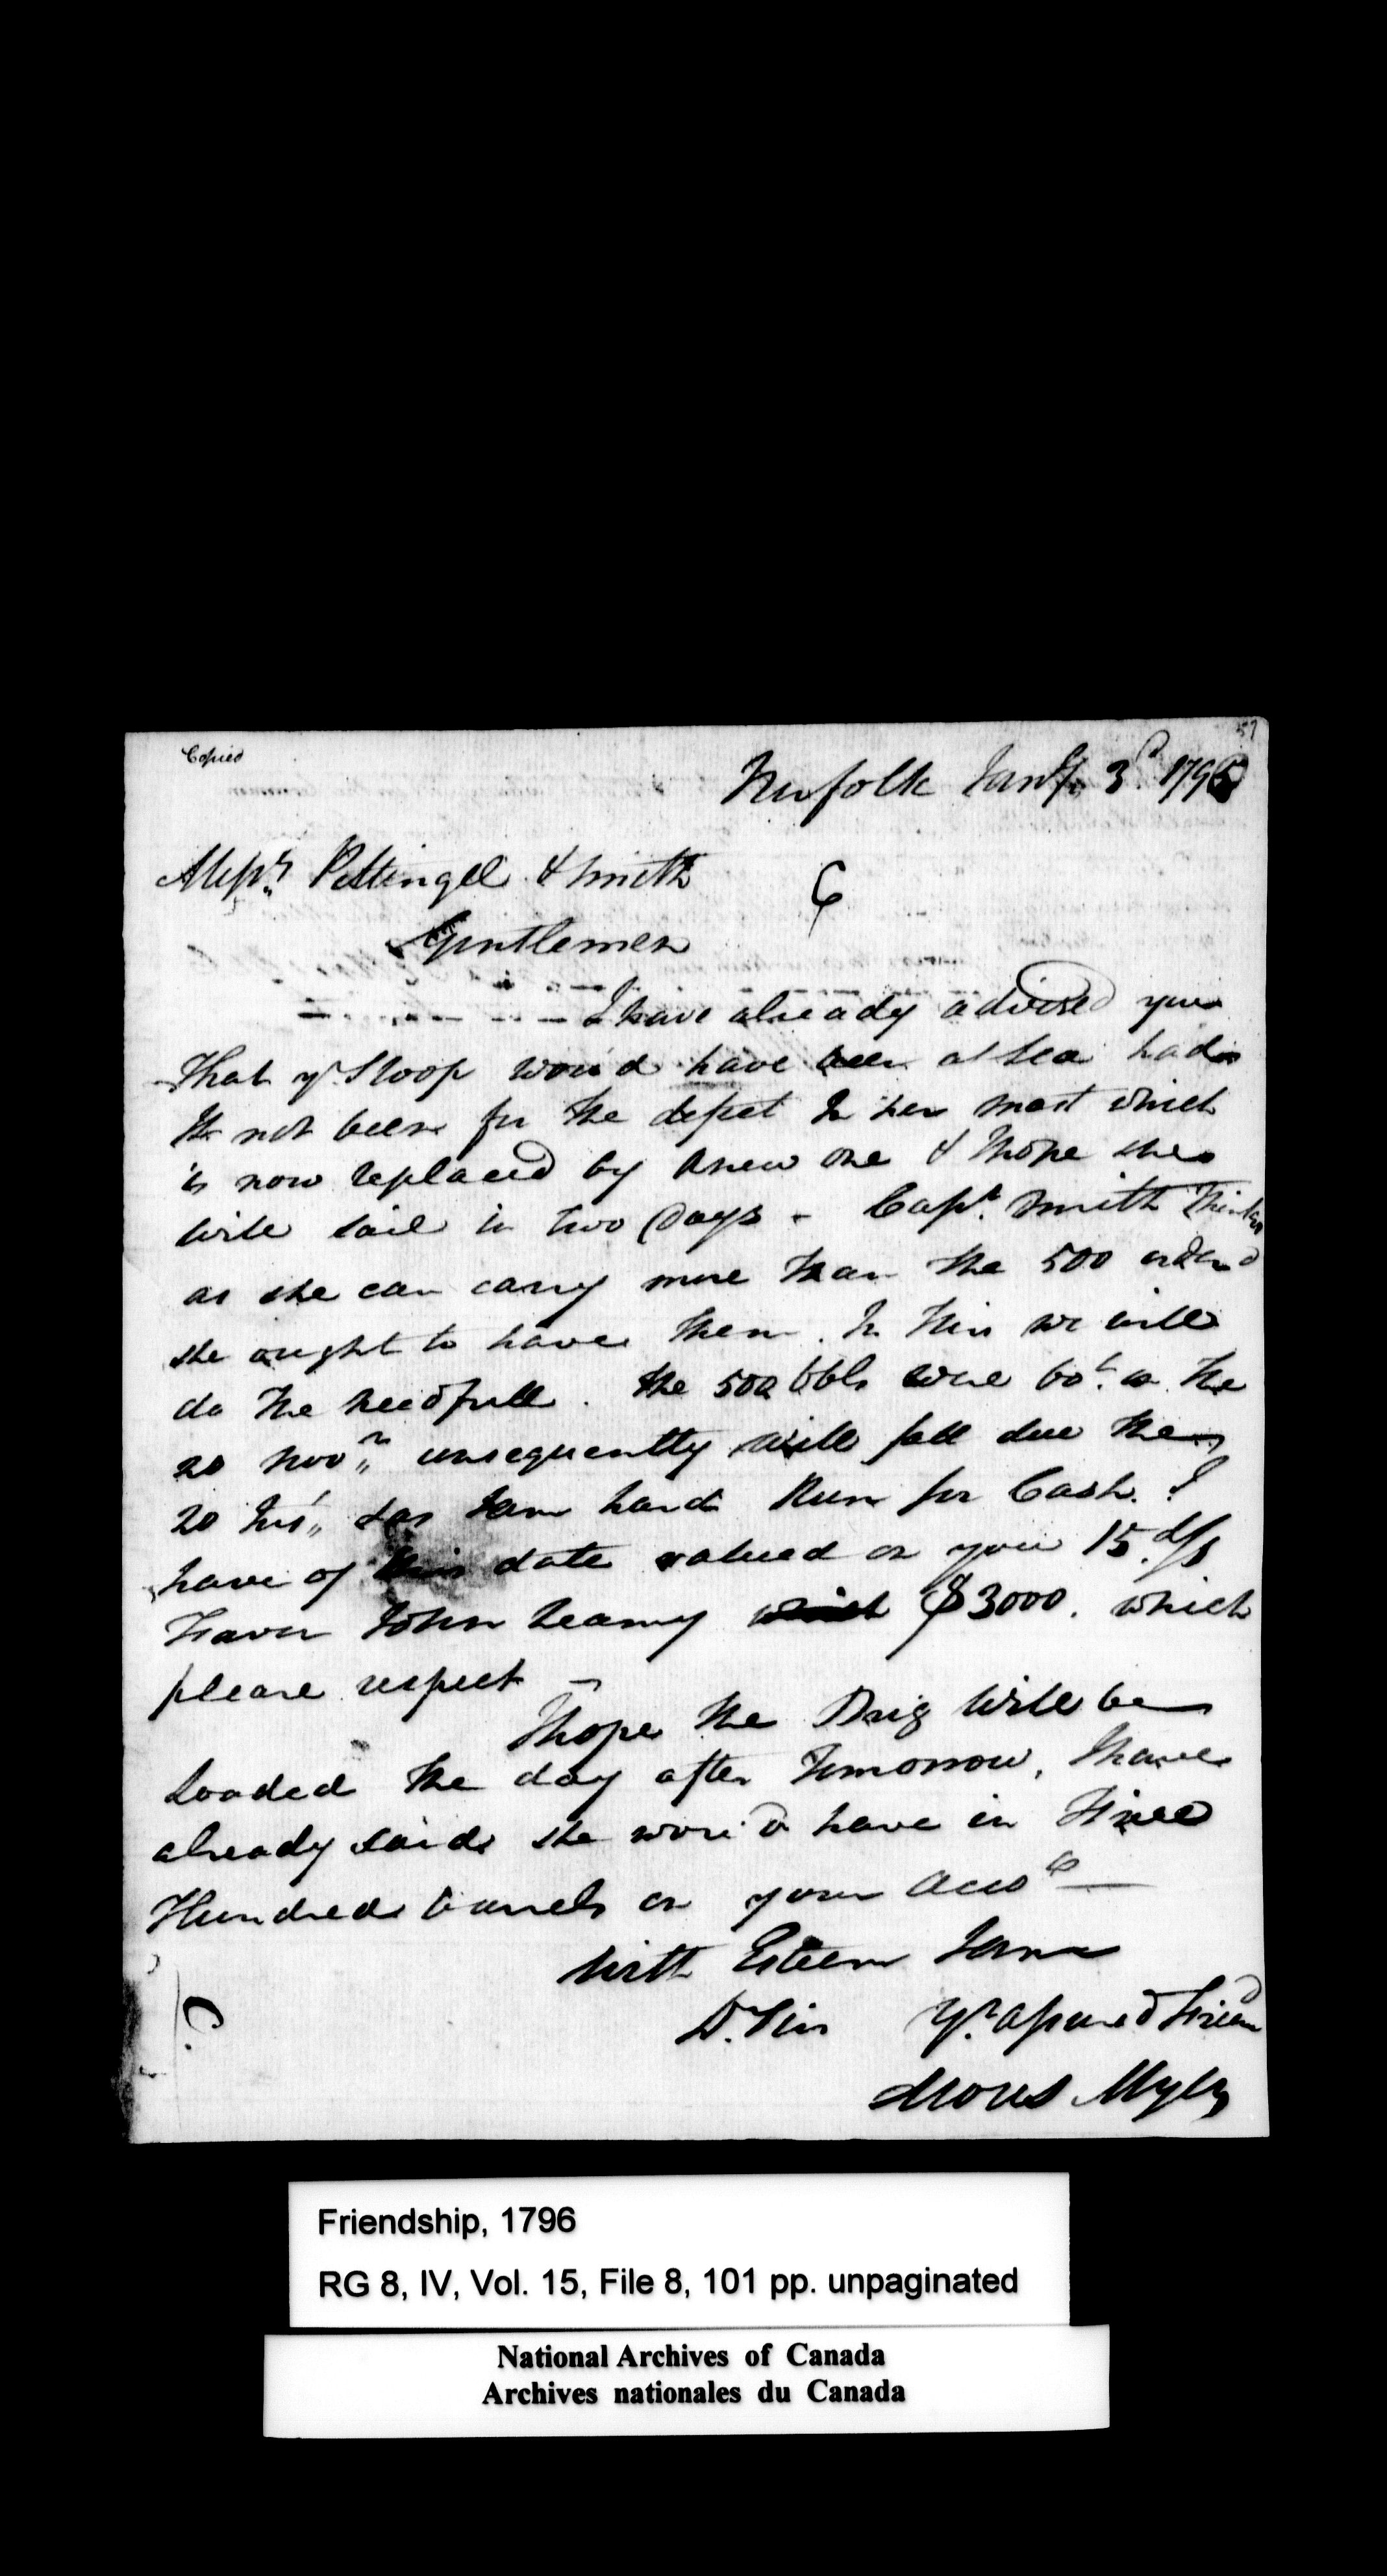 57
Copied
Norfolk Jany. 3d. 1796
Messrs. Pettingel & Smith
C
Gentlemen
I have already advised you
that yr. Sloop wou'd have been at Sea had
It not been for the defect In her mast which
is now replaced by a new one & I hope she
will sail in two Days - Capt. Smith thinks
as she can carry more than the 500 order'd
she ought to have them. In this we will
do the needfull. the 500 bbls were bot. on the
20 Novr. consequently will fall due the
20 Inst. & as I am hard Run for Cash. I
have of this date valued on you 15 d/s
Favor John Leamy $3000. which
please respect -
I hope the Brig Will be
Loaded the day after Tomorrow, I have
already said she wou'd have in Three
Hundred barrels on your Acco
With Esteem I am
Dr. Sirs Yr. assured Friend
Moses Myers
C
Friendship, 1796
RG 8, IV, Vol. 15, File 8, 101 pp. unpaginated
National Archives of Canada
Archives nationales du Canada